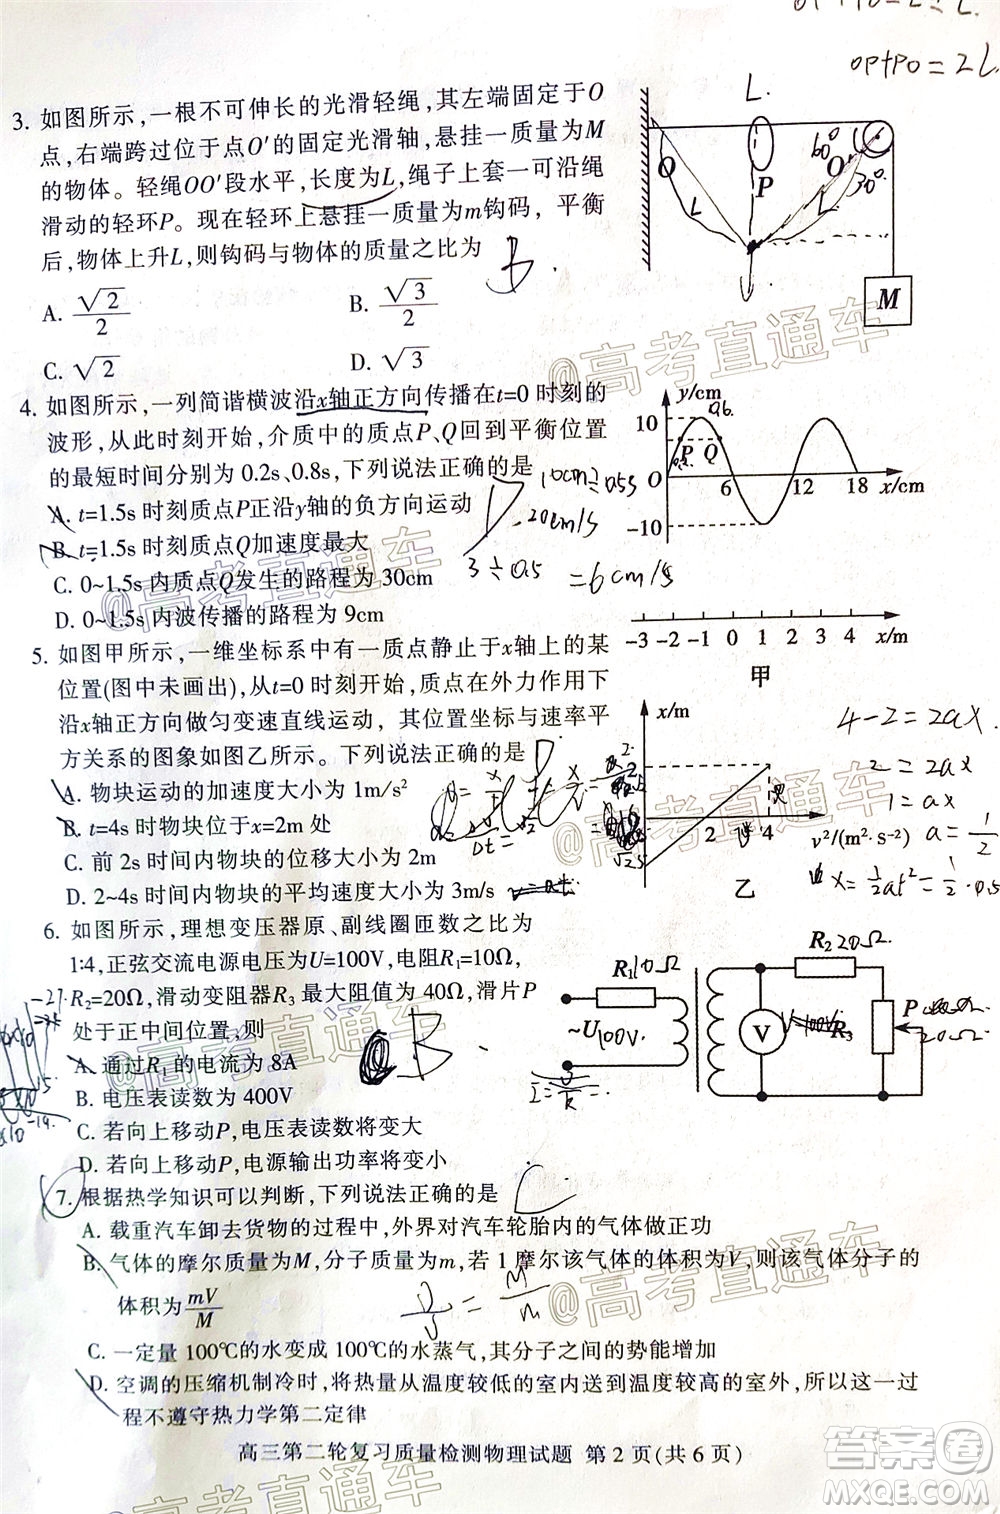 OP+PO=2L.
3. 如图所示,一根不可伸长的光滑轻绳,其左端固定于O
点,右端跨过位于点O′的固定光滑轴,悬挂一质量为M
的物体。轻绳OO′段水平,长度为L,绳子上套一可沿绳
滑动的轻环P。现在轻环上悬挂一质量为m钩码,平衡
后,物体上升L,则钩码与物体的质量之比为 B.
A. √2/2 B. √3/2
C. √2 D. √3
L.
O P O′ 60° 30°
L L
M
4. 如图所示,一列简谐横波沿x轴正方向传播在t=0 时刻的
波形,从此时刻开始,介质中的质点P、Q回到平衡位置
的最短时间分别为 0.2s、0.8s,下列说法正确的是 D
A. t=1.5s 时刻质点P正沿y轴的负方向运动
B. t=1.5s 时刻质点Q加速度最大
C. 0~1.5s 内质点Q发生的路程为 30cm
D. 0~1.5s 内波传播的路程为 9cm
10cm÷0.5s
=20cm/s
3÷0.5 =6cm/s
y/cm
10
P Q
O 6 12 18 x/cm
-10
5. 如图甲所示,一维坐标系中有一质点静止于x轴上的某
位置(图中未画出),从t=0 时刻开始,质点在外力作用下
沿x轴正方向做匀变速直线运动, 其位置坐标与速率平
方关系的图象如图乙所示。下列说法正确的是 D
A. 物块运动的加速度大小为 1m/s²
B. t=4s 时物块位于x=2m 处
C. 前 2s 时间内物块的位移大小为 2m
D. 2~4s 时间内物块的平均速度大小为 3m/s
-3 -2 -1 0 1 2 3 4 x/m
甲
x/m
2 4
v²/(m²·s⁻²)
乙
4-2=2ax.
2=2ax
1=ax
a=1/2
x=1/2at²=1/2·0.5
6. 如图所示,理想变压器原、副线圈匝数之比为
1:4,正弦交流电源电压为U=100V,电阻R₁=10Ω,
R₂=20Ω,滑动变阻器R₃ 最大阻值为 40Ω,滑片P
处于正中间位置,则
A. 通过R₁的电流为 8A
B. 电压表读数为 400V
C. 若向上移动P,电压表读数将变大
D. 若向上移动P,电源输出功率将变小
B.
R₁ 10Ω
~U 100V.
V
R₂ 20Ω.
R₃
P
20Ω.
I=U/R
7. 根据热学知识可以判断,下列说法正确的是 C
A. 载重汽车卸去货物的过程中,外界对汽车轮胎内的气体做正功
B. 气体的摩尔质量为M,分子质量为m,若 1 摩尔该气体的体积为V,则该气体分子的
体积为mV/M
=M/m
C. 一定量 100℃的水变成 100℃的水蒸气,其分子之间的势能增加
D. 空调的压缩机制冷时,将热量从温度较低的室内送到温度较高的室外,所以这一过
程不遵守热力学第二定律
高三第二轮复习质量检测物理试题 第 2 页(共 6 页)
@高考直通车
@高考直通车
@高考直通车
@高考直通车
@高考直通车
@高考直通车
答案圈
MXQE.COM